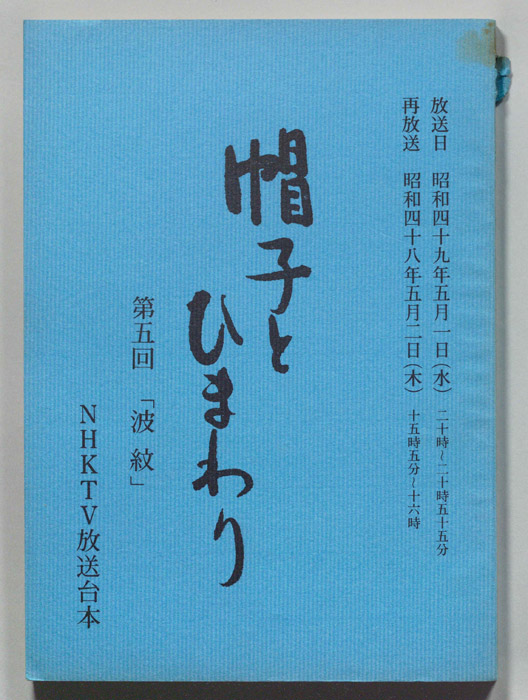 放送日 昭和四十九年五月一日(水) 二十時~二十時五十五分
再放送 昭和四十八年五月二日(木) 十五時五分~十六時
帽子と
ひまわり
第五回 「波紋」
NHKTV放送台本